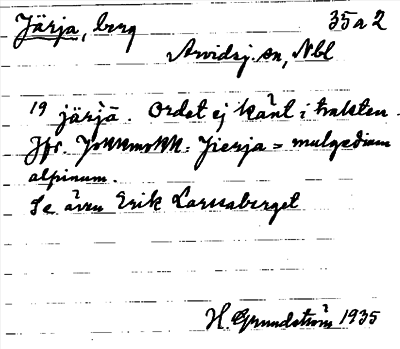 Järja, berg 35 a 2
Arvidsj. sn, Nbl
19 järja. Ordet ej känt i trakten.
Jfr. Jokkmokk: Jierja = mulgedium
alpinum.
Se även Erik Larssaberget
H. Grundström 1935